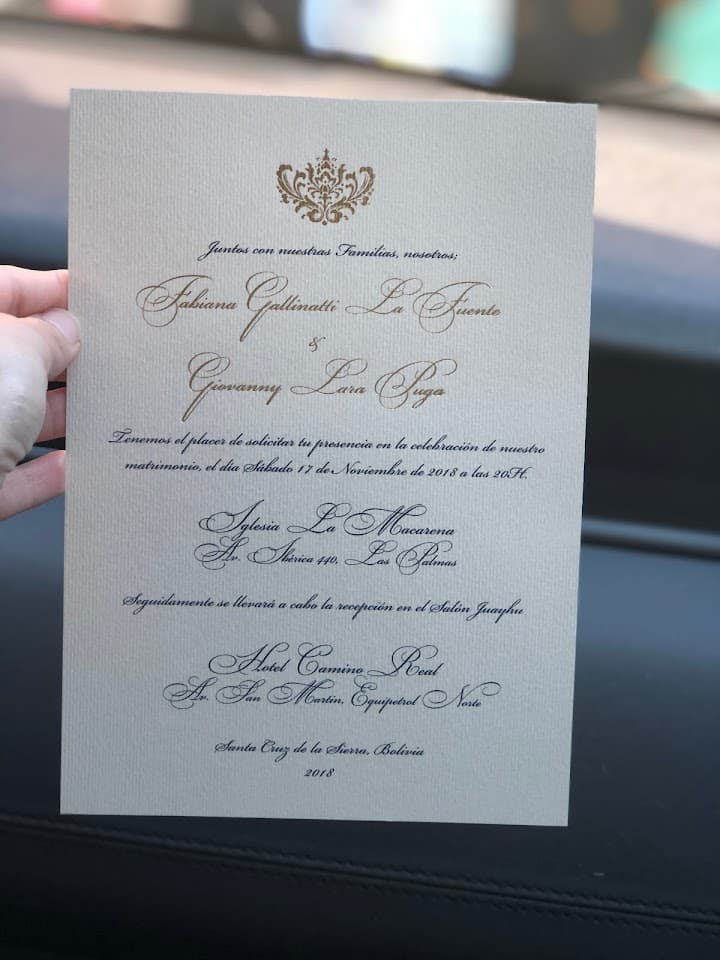 Juntos con nuestras Familias, nosotros;
Fabiana Gallinatti La Fuente
&
Giovanny Lara Puga
Tenemos el placer de solicitar tu presencia en la celebración de nuestro
matrimonio, el día Sábado 17 de Noviembre de 2018 a las 20H.
Iglesia La Macarena
Av. Ibérica 440, Las Palmas
Seguidamente se llevará a cabo la recepción en el Salón Juayhu
Hotel Camino Real
Av. San Martín, Equipetrol Norte
Santa Cruz de la Sierra, Bolivia
2018